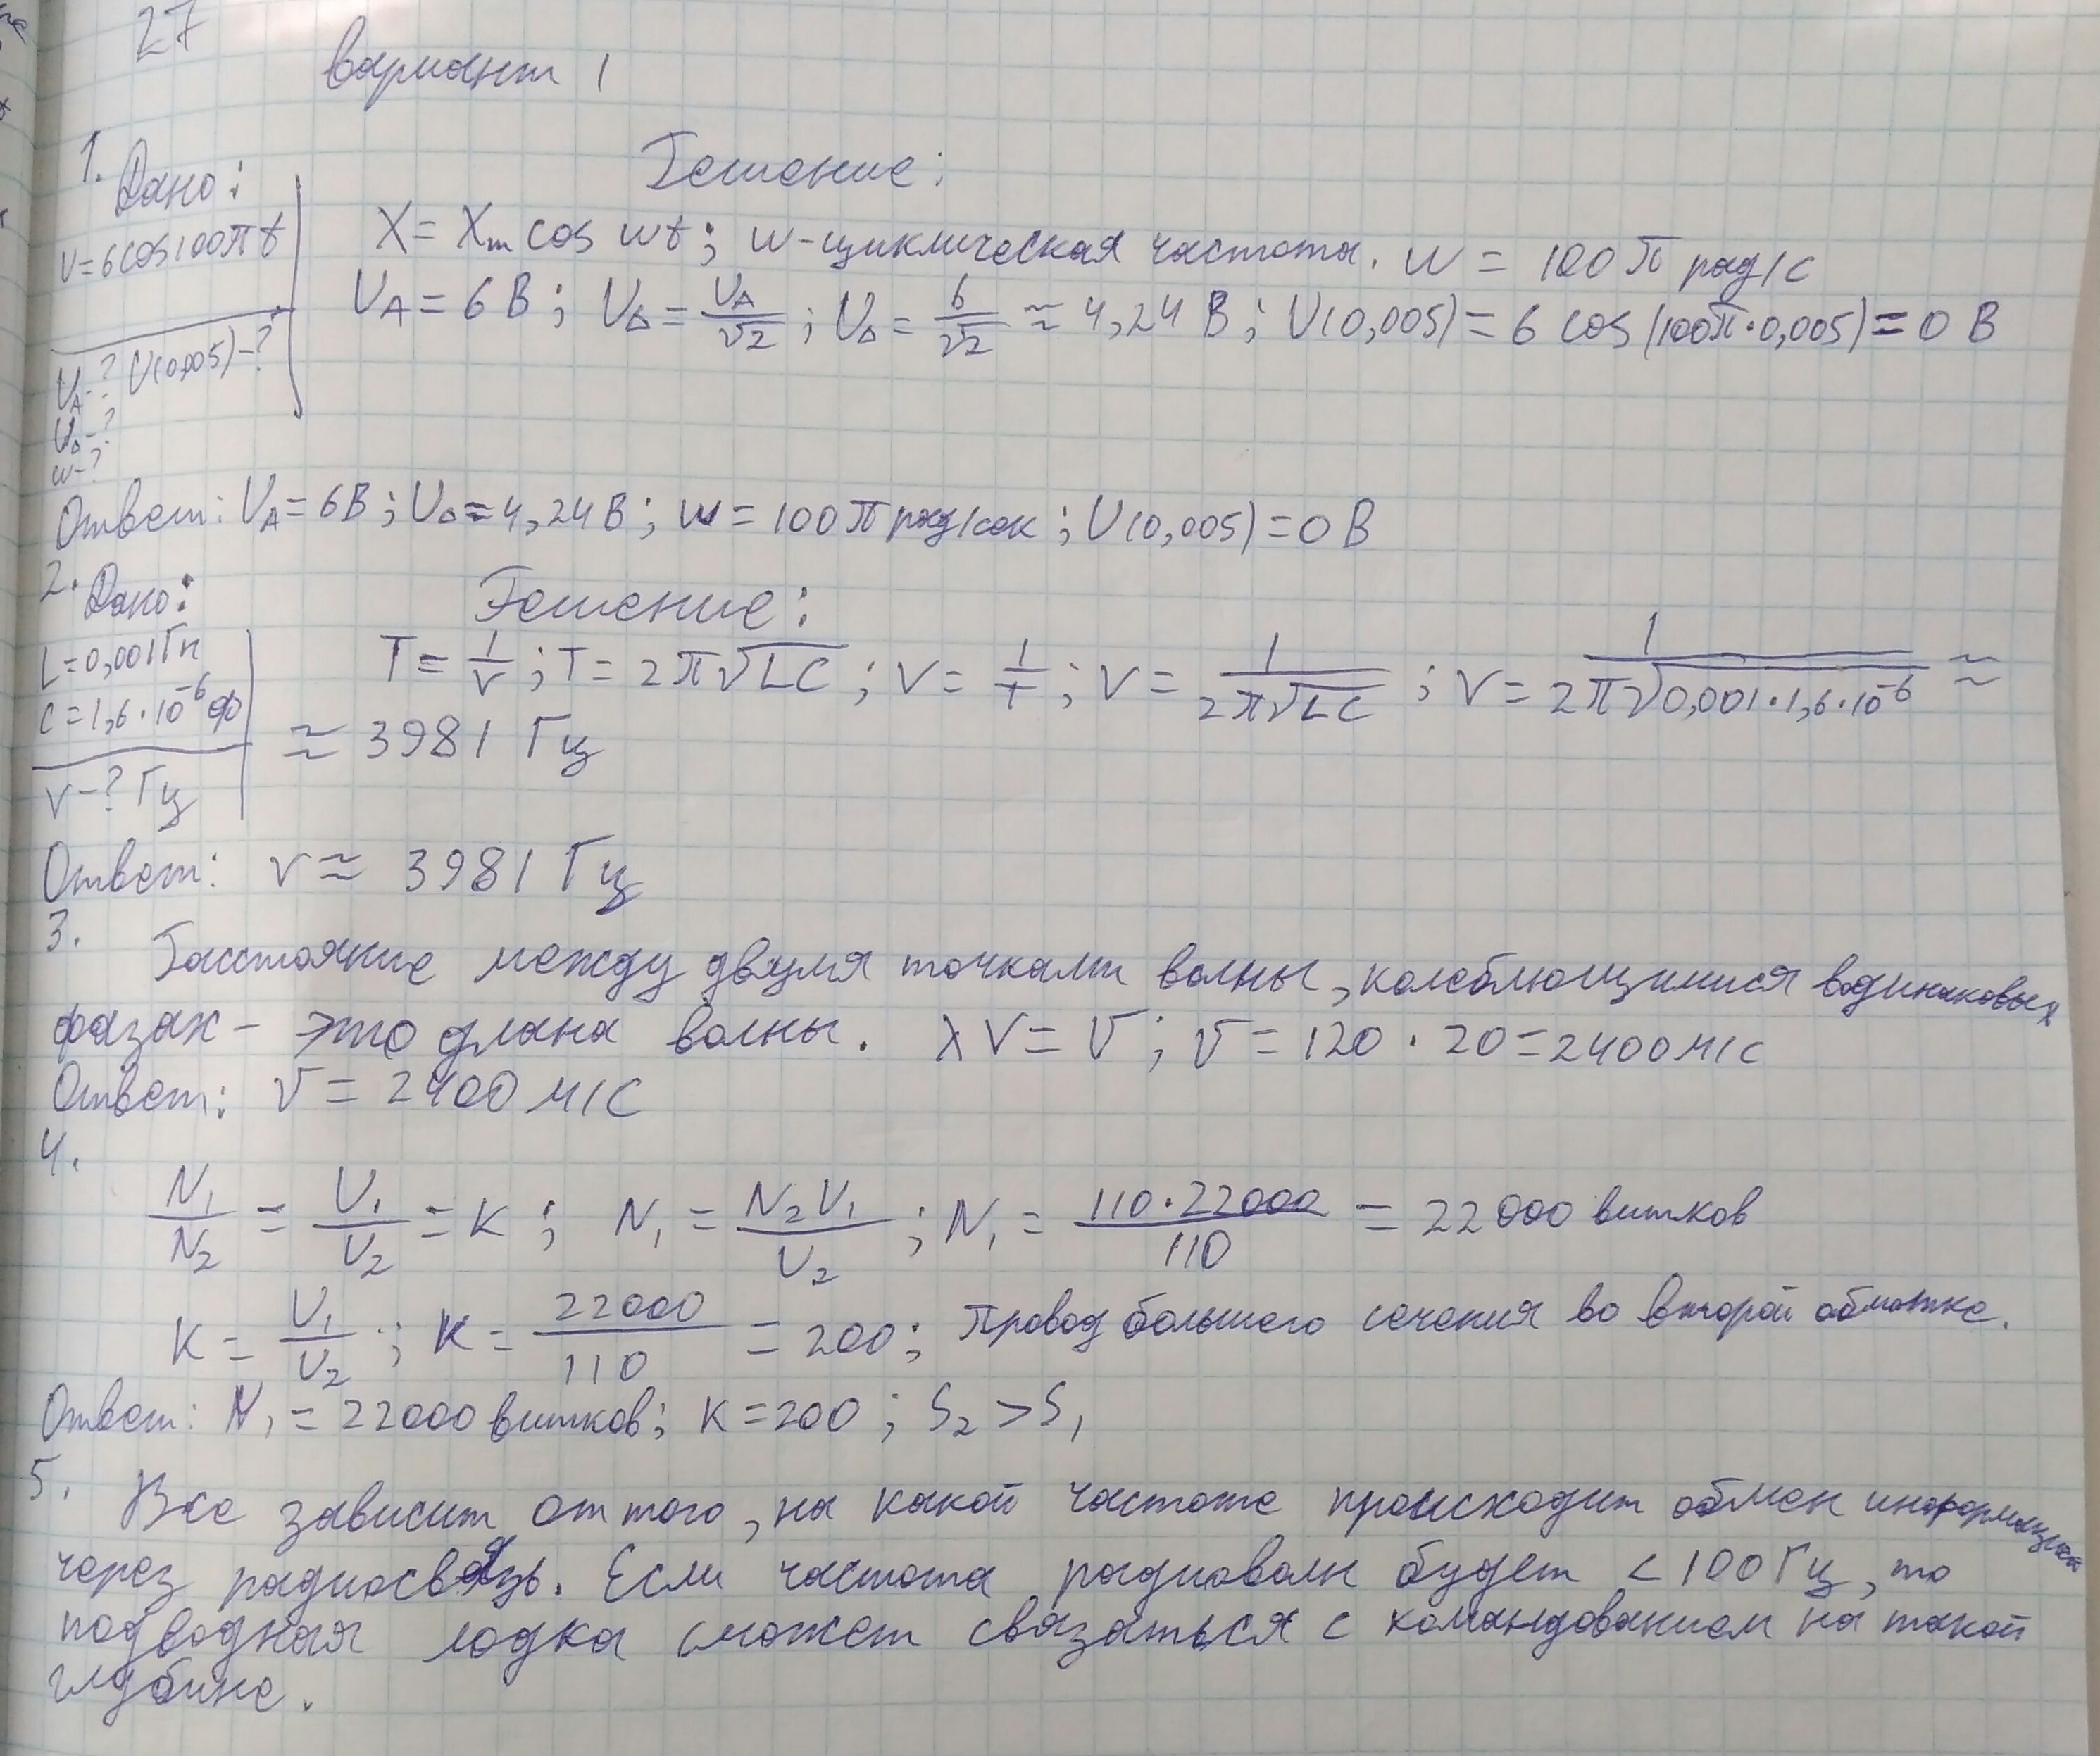 27
вариант 1
1. Дано:
Решение:
U=6cos100πt
X = Xm cos wt; w-циклическая частота. w = 100π рад/с
UA = 6 В; UΔ = UA/√2; UΔ = 6/√2 ≈ 4,24 В; U(0,005) = 6 cos (100π·0,005) = 0 В
UA-? U(0,005)-?
UΔ-?
w-?
Ответ: UA = 6В; UΔ = 4,24В; w = 100π рад/сек; U(0,005) = 0 В
2. Дано:
Решение:
L=0,001Гн
C=1,6·10⁻⁶ф
T = 1/ν; T = 2π√LC; ν = 1/T; ν = 1/2π√LC; ν = 1/2π√0,001·1,6·10⁻⁶ ≈
≈ 3981 Гц
ν-? Гц
Ответ: ν ≈ 3981 Гц
3. Расстояние между двумя точками волны, колеблющимися в одинаковых
фазах - это длина волны. λν = V; V = 120 · 20 = 2400 м/с
Ответ: V = 2400 м/с
4.
N₁/N₂ = U₁/U₂ = K; N₁ = N₂U₁/U₂; N₁ = 110·22000/110 = 22000 витков
K = U₁/U₂; K = 22000/110 = 200; Провод большего сечения во второй обмотке.
Ответ: N₁ = 22000 витков; K = 200; S₂ > S₁
5. Все зависит от того, на какой частоте происходит обмен информации
через радиосвязь. Если частота радиоволн будет < 100 Гц, то
подводная лодка сможет связаться с командованием на такой
глубине.